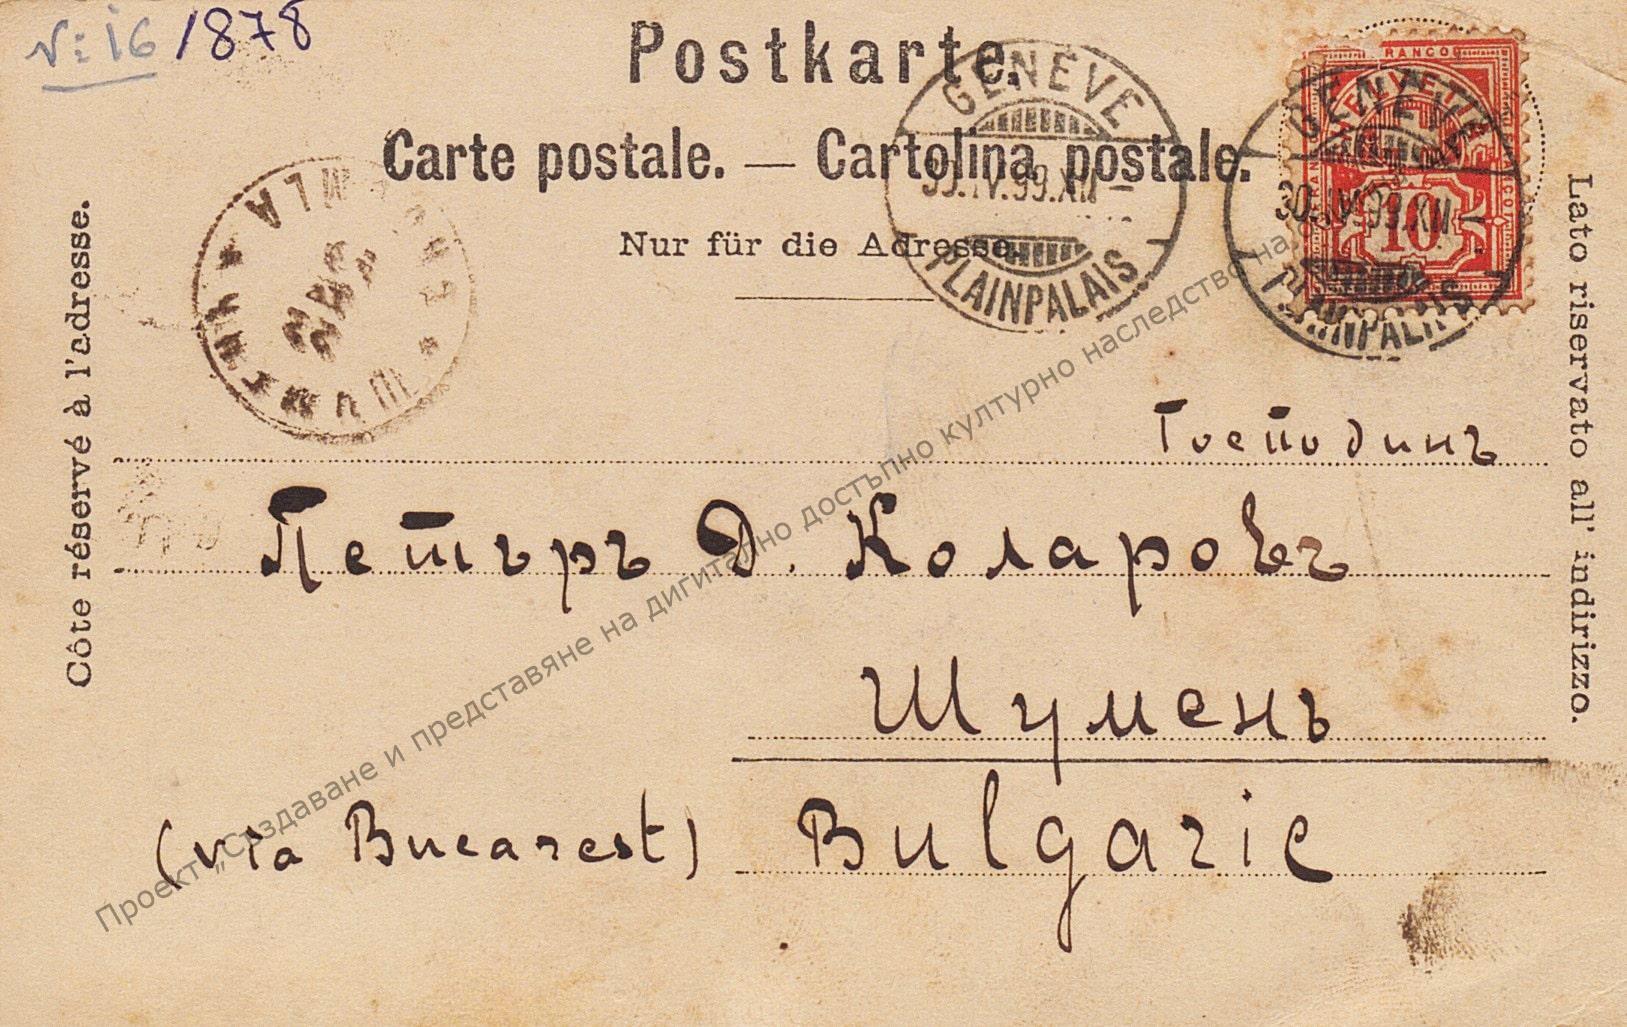 N: 16 / 878
Postkarte.
Carte postale. — Cartolina postale.
Nur für die Adresse.
Côte réservé à l'adresse.
Lato riservato all' indirizzo.
GENÈVE
30.IV.99.XII
PLAINPALAIS
FRANCO
HELVETIA
10
GENÈVE
30.IV.99.XII
PLAINPALAIS
Господинъ
Петъръ Д. Коларовъ
Шуменъ
(via Bucarest) Bulgarie
Проект „Създаване и представяне на дигитално достъпно културно наследство на